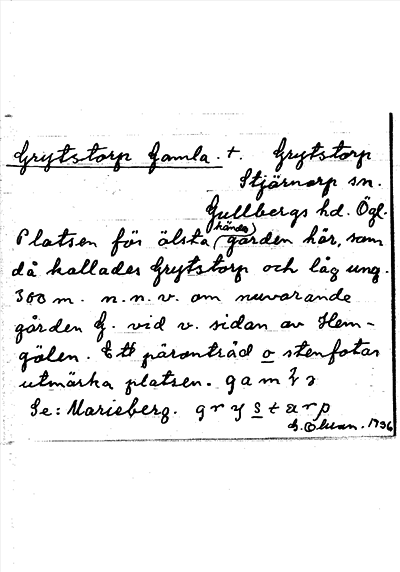 Grytstorp Gamla. +. Grytstorp
Stjärnorp sn.
Gullbergs hd. Ögl.
Platsen för älsta (kända) gården här, som
då kallades Grytstorp och låg ung.
300 m. n.n.v. om nuvarande
gården G. vid v. sidan av Hem-
gölen. Ett päronträd o stenfotar
utmärka platsen. gam
Se: Marieberg. grystarp
1936